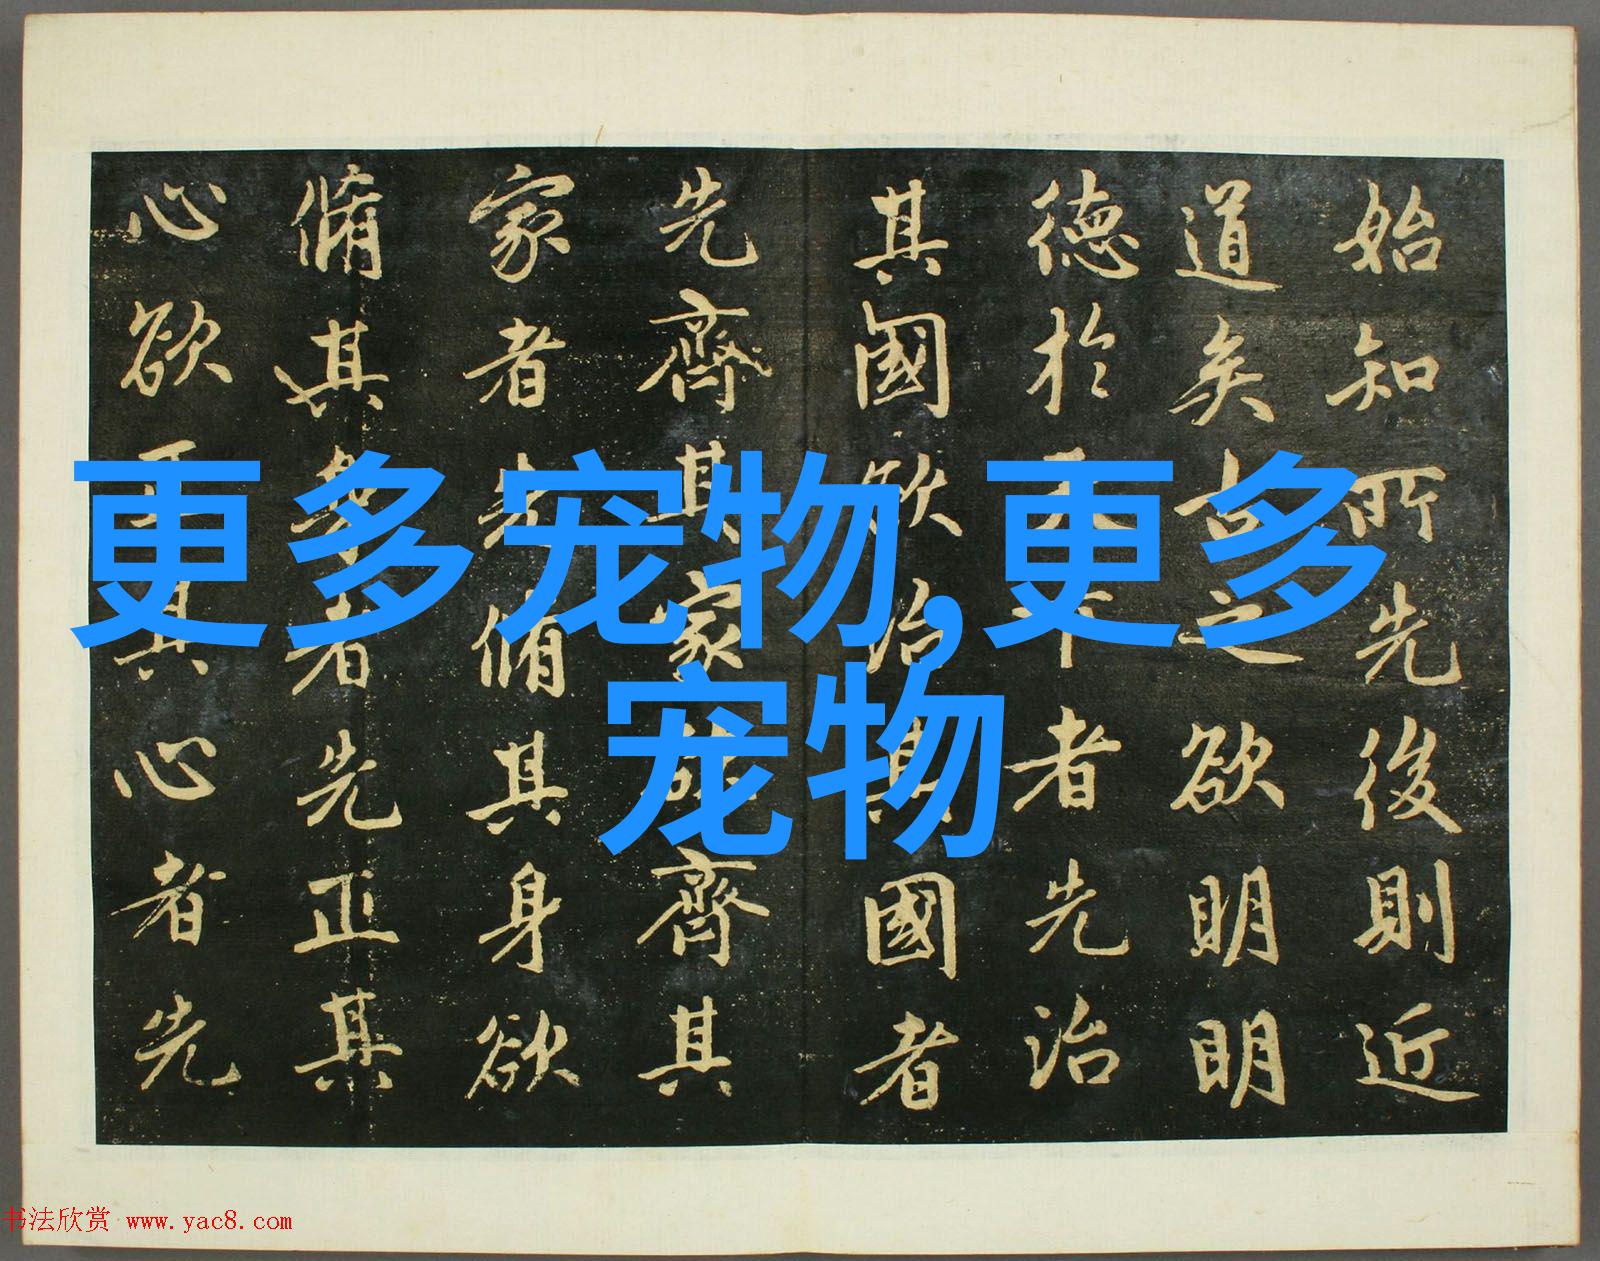 更多宠物,更多
宠物
始知所先後則近
道矣古之欲明明
德於天下者先治
其國欲治其國者
先齊其家欲齊其
家者先脩其身欲
脩其身者先正其
心欲正其心者先
书法欣赏 www.yac8.com